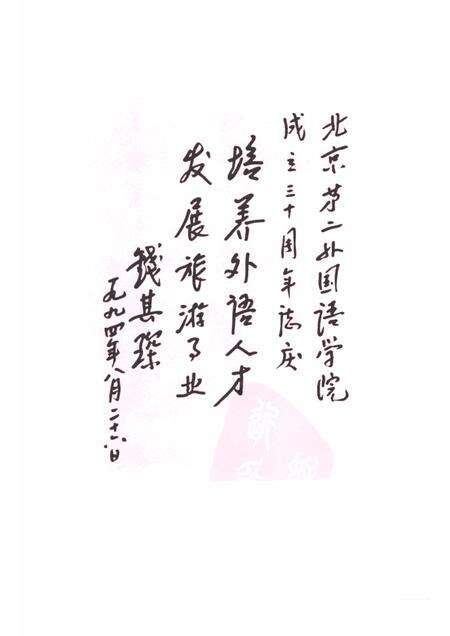 北京第二外国语学院
成立三十周年志庆
培养外语人才
发展旅游事业
钱其琛
一九九四年八月二十六日